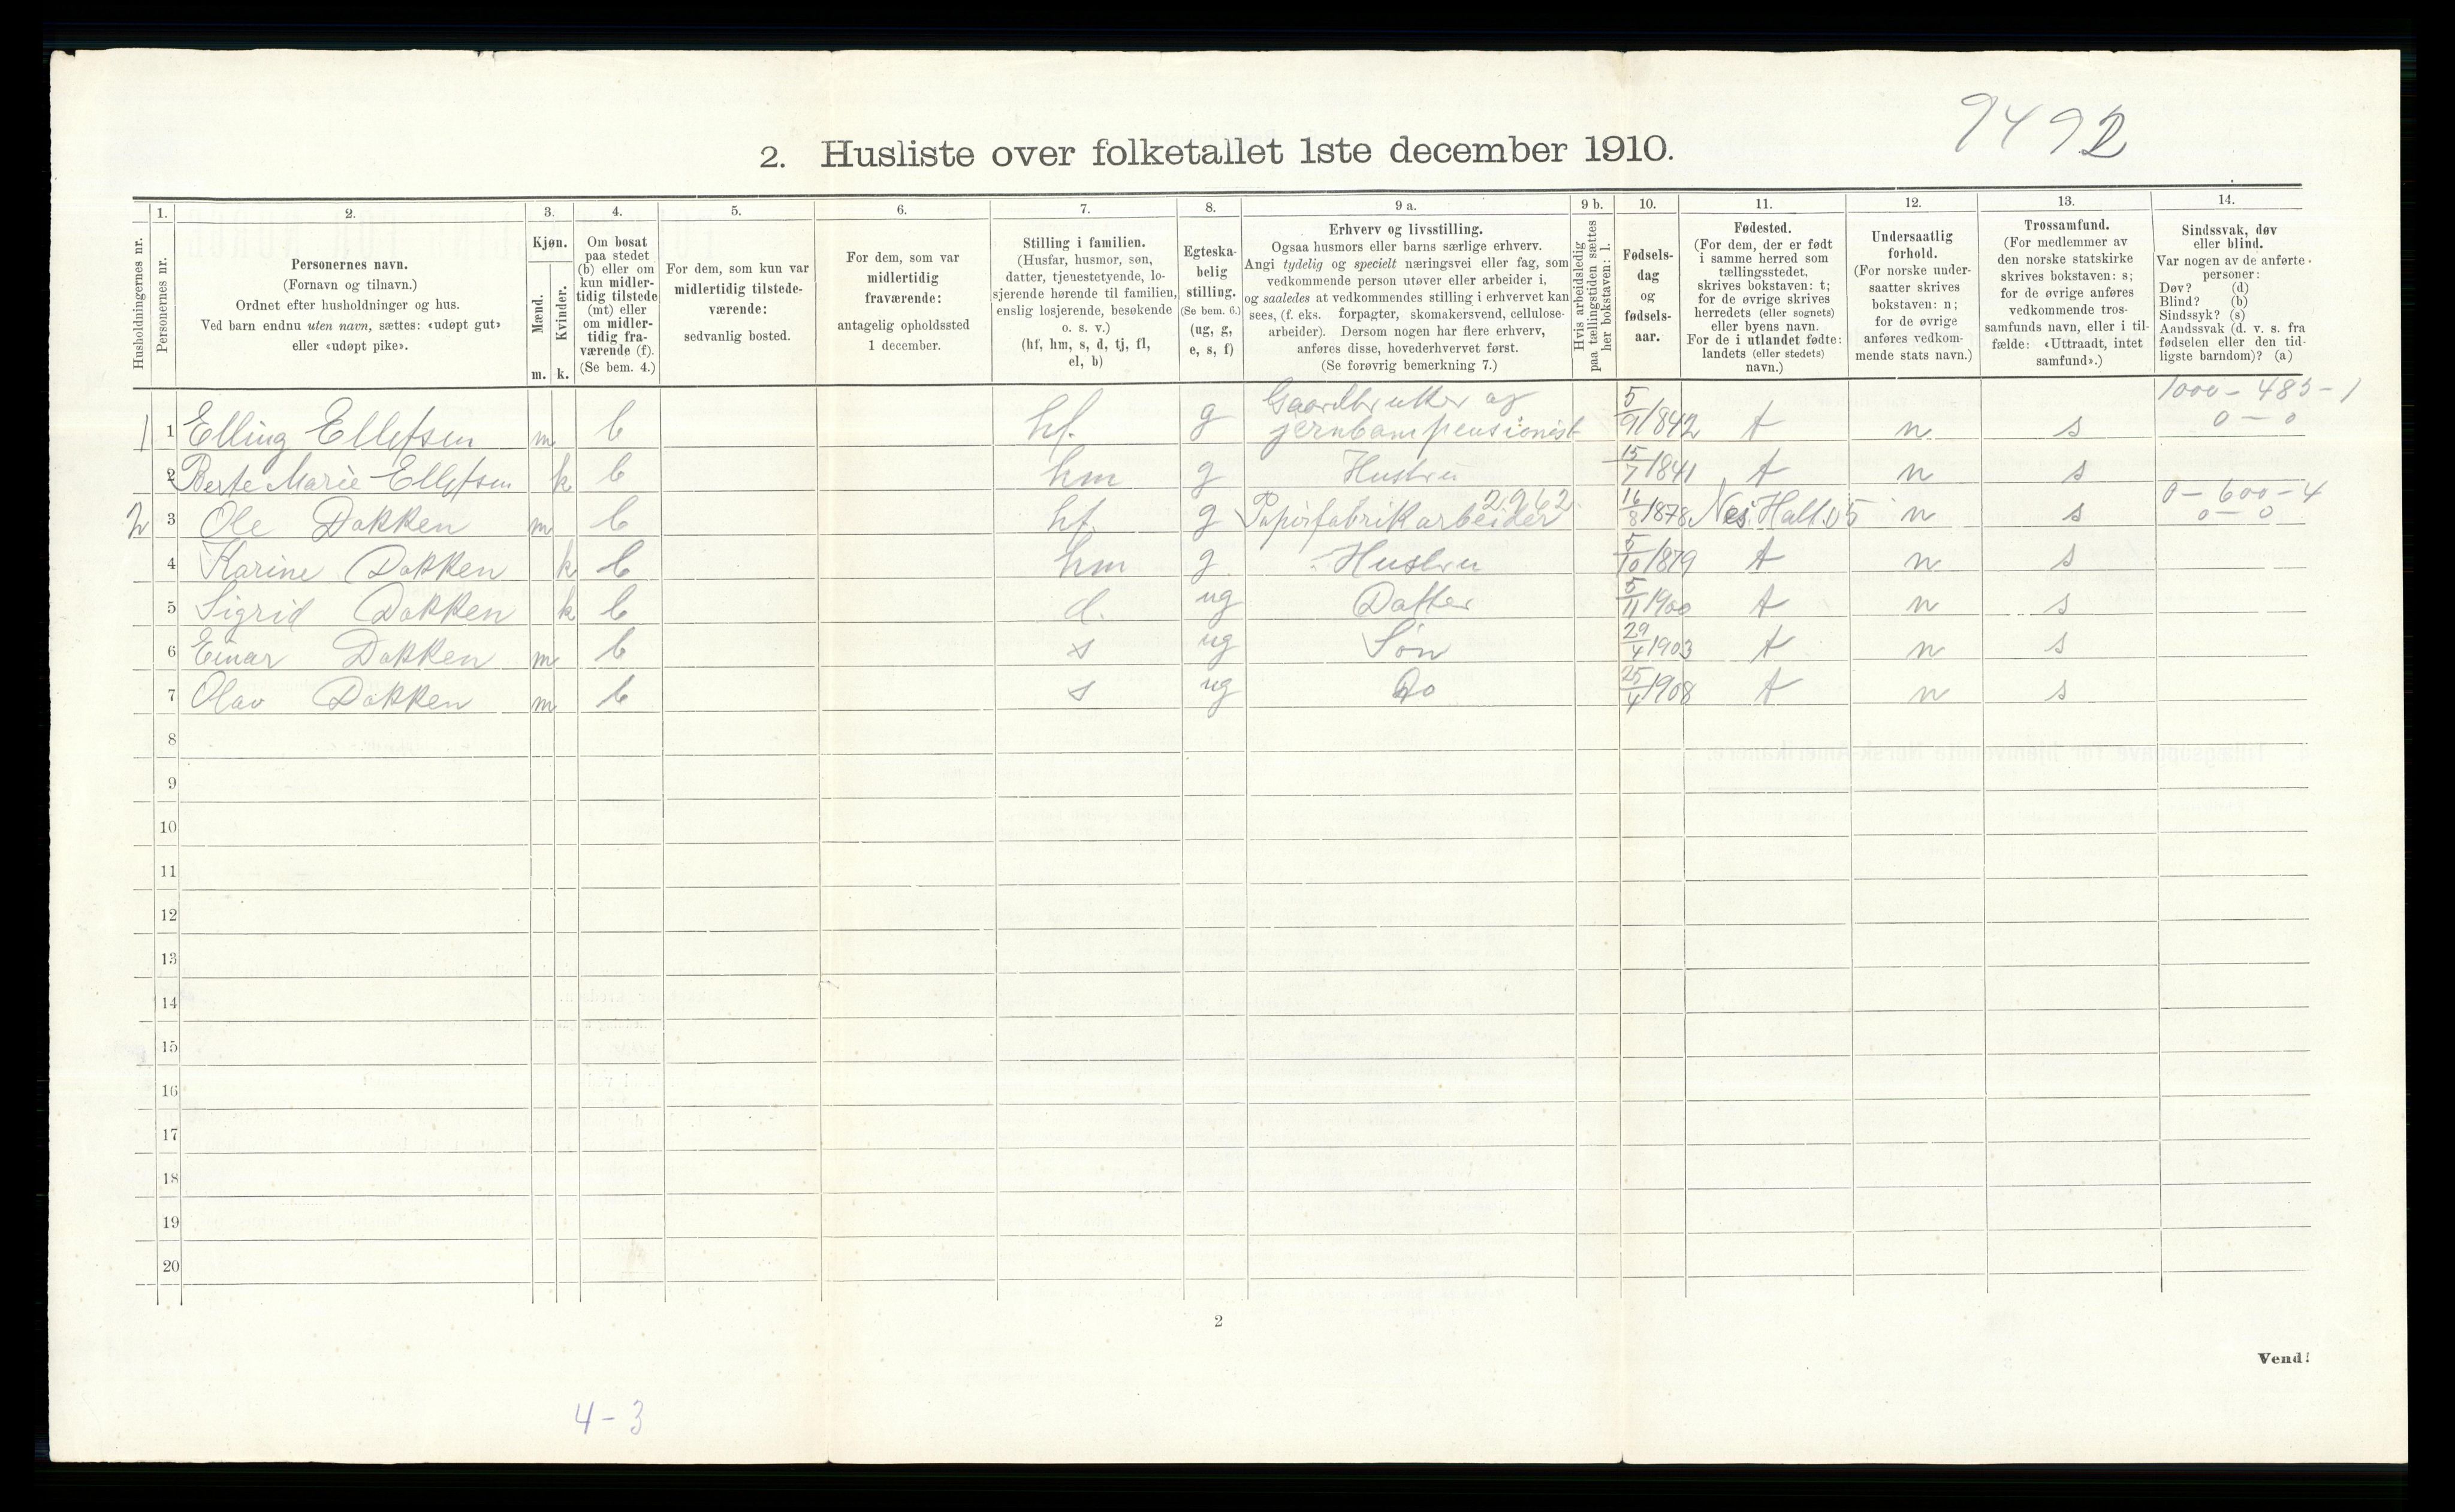 9492
2. Husliste over folketallet 1ste december 1910.
Husholdningernes nr.
1. Personernes nr.
2. Personernes navn.
(Fornavn og tilnavn.)
Ordnet efter husholdninger og hus.
Ved barn endnu uten navn, sættes: «udøpt gut»
eller «udøpt pike».
3. Kjøn.
Mænd. m.
Kvinder. k.
4. Om bosat
paa stedet
(b) eller om
kun midler-
tidig tilstede
(mt) eller
om midler-
tidig fra-
værende (f).
(Se bem. 4.)
5. For dem, som kun var
midlertidig tilstede-
værende:
sedvanlig bosted.
6. For dem, som var
midlertidig
fraværende:
antagelig opholdssted
1 december.
7. Stilling i familien.
(Husfar, husmor, søn,
datter, tjenestetyende, lo-
sjerende hørende til familien,
enslig losjerende, besøkende
o. s. v.)
(hf, hm, s, d, tj, fl,
el, b)
8. Egteska-
belig
stilling.
(Se bem. 6.)
(ug, g,
e, s, f)
9 a. Erhverv og livsstilling.
Ogsaa husmors eller barns særlige erhverv.
Angi tydelig og specielt næringsvei eller fag, som
vedkommende person utøver eller arbeider i,
og saaledes at vedkommendes stilling i erhvervet kan
sees, (f. eks. forpagter, skomakersvend, cellulose-
arbeider). Dersom nogen har flere erhverv,
anføres disse, hovederhvervet først.
(Se forøvrig bemerkning 7.)
9 b. Hvis arbeidsledig
paa tællingstiden sættes
her bokstaven: l.
10. Fødsels-
dag
og
fødsels-
aar.
11. Fødested.
(For dem, der er født
i samme herred som
tællingsstedet,
skrives bokstaven: t;
for de øvrige skrives
herredets (eller sognets)
eller byens navn.
For de i utlandet fødte:
landets (eller stedets)
navn.)
12. Undersaatlig
forhold.
(For norske under-
saatter skrives
bokstaven: n;
for de øvrige
anføres vedkom-
mende stats navn.)
13. Trossamfund.
(For medlemmer av
den norske statskirke
skrives bokstaven: s;
for de øvrige anføres
vedkommende tros-
samfunds navn, eller i til-
fælde: «Uttraadt, intet
samfund».)
14. Sindssvak, døv
eller blind.
Var nogen av de anførte
personer:
Døv? (d)
Blind? (b)
Sindssyk? (s)
Aandssvak (d. v. s. fra
fødselen eller den tid-
ligste barndom)? (a)
1 1 Elling Ellefsen m b hf. g Gaardbruker og jernbanepensionist 5/9 1842 t n s 1000 - 485 - 1 0 - 0
2 Berte Marie Ellefsen k b hm g Hustru 15/7 1841 t n s
2 3 Ole Dokken m b hf. g Papirfabrikarbeider 2962 16/8 1878 Nes. Hall. 05 n s 0 - 600 - 4 0 - 0
4 Karine Dokken k b hm g Hustru 5/10 1879 t n s
5 Sigrid Dokken k b d. ug Datter 5/11 1900 t n s
6 Einar Dokken m b s ug Søn 29/4 1903 t n s
7 Olav Dokken m b s ug Do 25/4 1908 t n s
8
9
10
11
12
13
14
15
16
17
18
19
20
2
Vend!
4 - 3